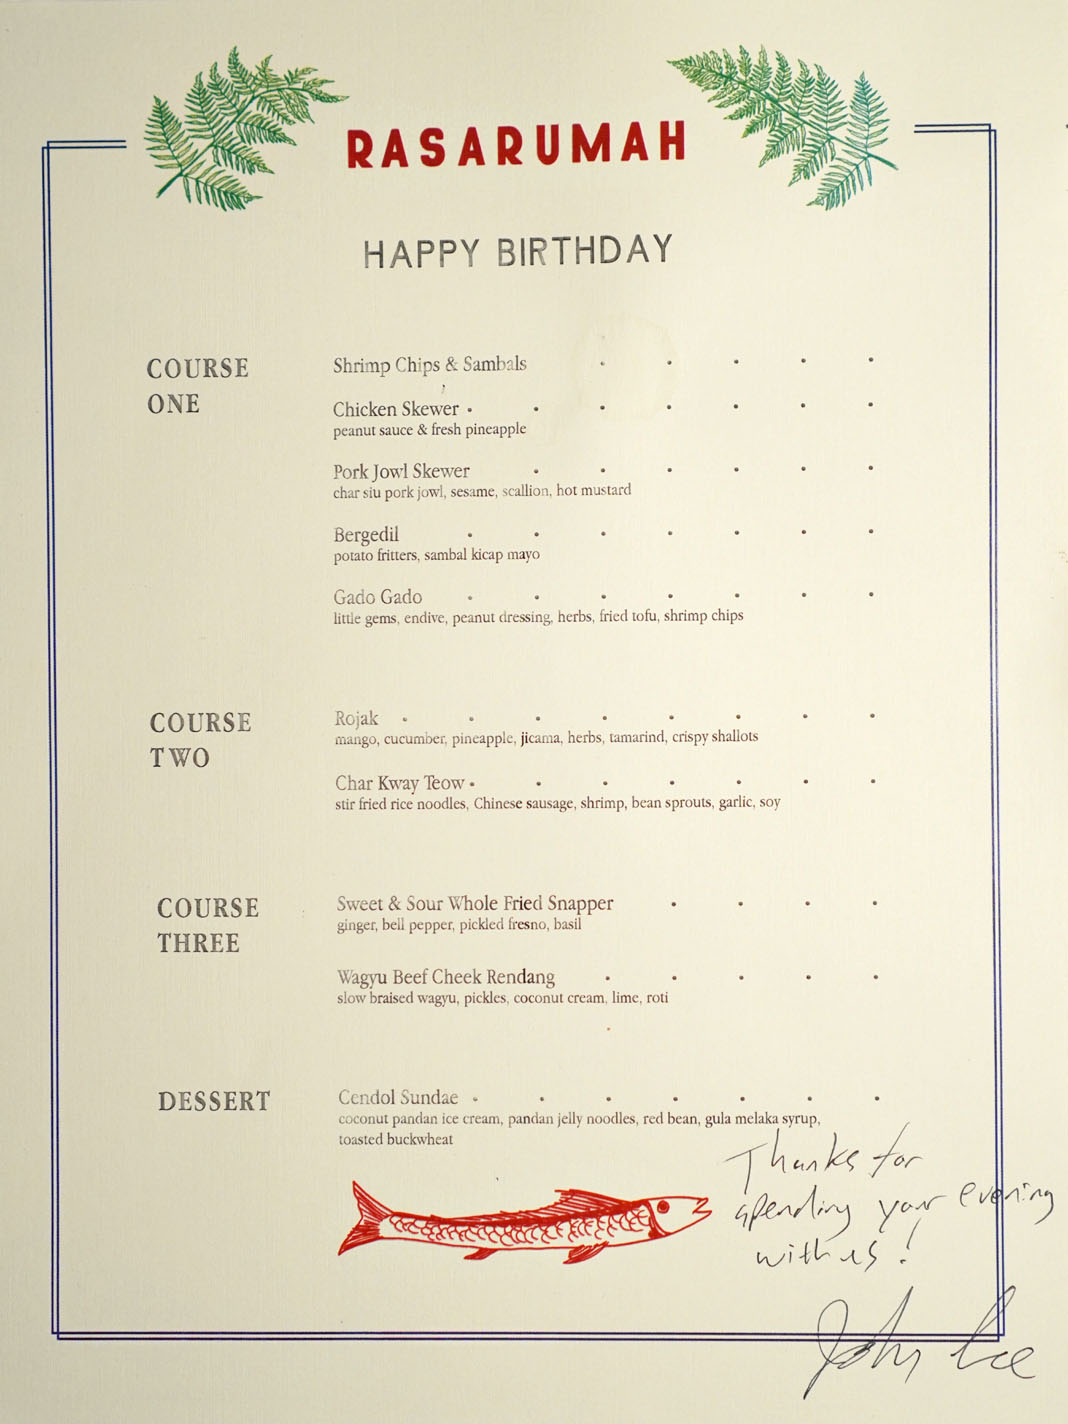 RASARUMAH
HAPPY BIRTHDAY
COURSE
ONE
Shrimp Chips & Sambals
Chicken Skewer
peanut sauce & fresh pineapple
Pork Jowl Skewer
char siu pork jowl, sesame, scallion, hot mustard
Bergedil
potato fritters, sambal kicap mayo
Gado Gado
little gems, endive, peanut dressing, herbs, fried tofu, shrimp chips
COURSE
TWO
Rojak
mango, cucumber, pineapple, jicama, herbs, tamarind, crispy shallots
Char Kway Teow
stir fried rice noodles, Chinese sausage, shrimp, bean sprouts, garlic, soy
COURSE
THREE
Sweet & Sour Whole Fried Snapper
ginger, bell pepper, pickled fresno, basil
Wagyu Beef Cheek Rendang
slow braised wagyu, pickles, coconut cream, lime, roti
DESSERT
Cendol Sundae
coconut pandan ice cream, pandan jelly noodles, red bean, gula melaka syrup,
toasted buckwheat
Thanks for
spending your evening
with us!
Johnny Lee